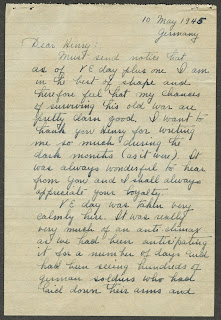 10 May 1945
Germany
Dear Henry:
Must send notice that
as of V E day plus one I am
in the best of shape and
therefore feel that my chances
of surviving this old war are
pretty darn good. I want to
thank you Henry for writing
me so much during the
dark months (as it were). It
was always wonderful to hear
from you and I shall always
appreciate your loyalty.
V E day was taken very
calmly here. It was really
very much of an anti climax
as we had been anticipating
it for a number of days and
had been seeing hundreds of
german soldiers who had
laid down their arms and